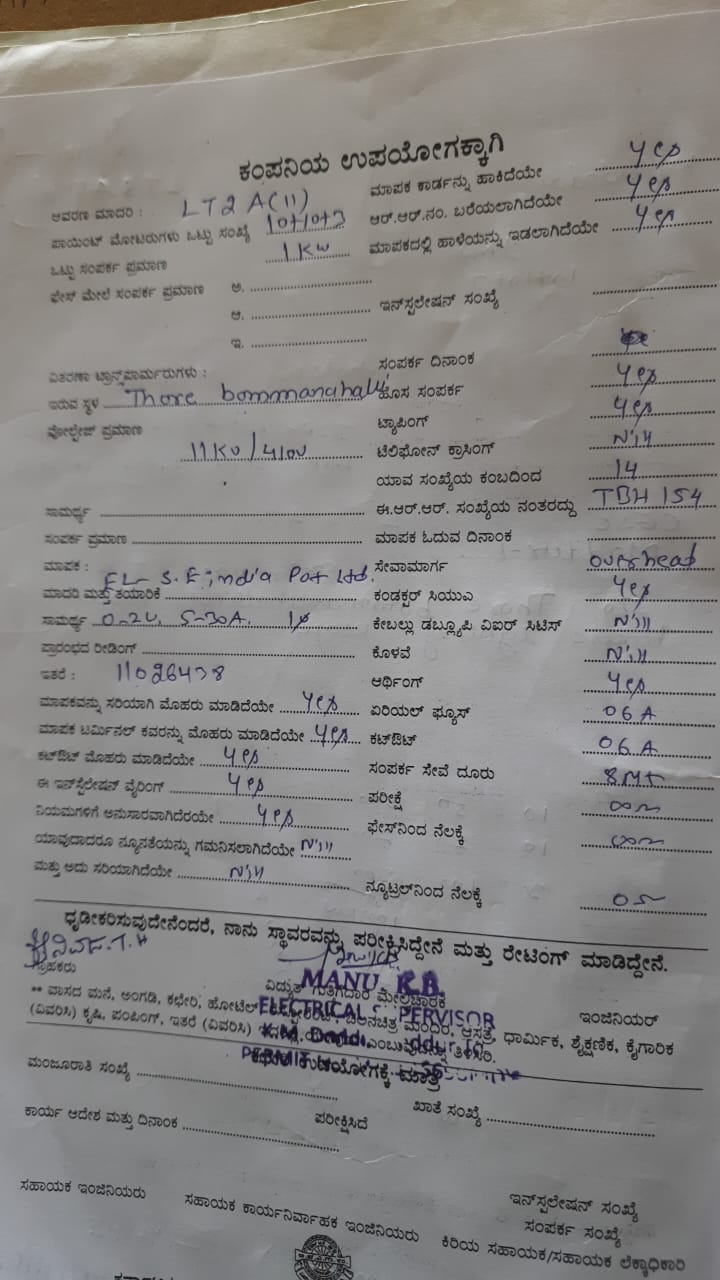 ಕಂಪನಿಯ ಉಪಯೋಗಕ್ಕಾಗಿ
ಆವರಣ ಮಾದರಿ : LT2 A(11) ಮಾಪಕ ಕಾರ್ಡನ್ನು ಹಾಕಿದೆಯೇ yes
ಪಾಯಿಂಟ್ ಮೋಟರುಗಳು ಒಟ್ಟು ಸಂಖ್ಯೆ ಆರ್.ಆರ್.ನಂ. ಬರೆಯಲಾಗಿದೆಯೇ yes
ಒಟ್ಟು ಸಂಪರ್ಕ ಪ್ರಮಾಣ 1 KW ಮಾಪಕದಲ್ಲಿ ಹಾಳೆಯನ್ನು ಇಡಲಾಗಿದೆಯೇ yes
ಫೇಸ್ ಮೇಲೆ ಸಂಪರ್ಕ ಪ್ರಮಾಣ ಅ.
ಆ. ಇನ್‌ಸ್ಪಲೇಷನ್ ಸಂಖ್ಯೆ
ಇ.
ವಿತರಣಾ ಟ್ರಾನ್ಸ್‌ಪಾರ್ಮರುಗಳು : ಸಂಪರ್ಕ ದಿನಾಂಕ
ಇರುವ ಸ್ಥಳ Thore bommanahalli ಹೊಸ ಸಂಪರ್ಕ yes
ವೋಲ್ಟೇಜ್ ಪ್ರಮಾಣ ಟ್ಯಾಪಿಂಗ್ yes
11KV/410V ಟೆಲಿಫೋನ್ ಕ್ರಾಸಿಂಗ್ Nill
ಯಾವ ಸಂಖ್ಯೆಯ ಕಂಬದಿಂದ 14
ಸಾಮರ್ಥ್ಯ ಈ.ಆರ್.ಆರ್. ಸಂಖ್ಯೆಯ ನಂತರದ್ದು TBH 154
ಸಂಪರ್ಕ ಪ್ರಮಾಣ ಮಾಪಕ ಓದುವ ದಿನಾಂಕ
ಮಾಪಕ : S.E india Pvt Ltd. ಸೇವಾಮಾರ್ಗ overhead
ಮಾದರಿ ಮತ್ತು ತಯಾರಿಕೆ ಕಂಡಕ್ಟರ್ ಸಿಯುಎ yes
ಸಾಮರ್ಥ್ಯ 5-30A. 1ø ಕೇಬಲ್ಲು ಡಬ್ಲ್ಯೂಪಿ ವಿಐರ್ ಸಿಟಿಸ್ Nill
ಪ್ರಾರಂಭದ ರೀಡಿಂಗ್ ಕೊಳವೆ Nill
ಇತರೆ : ಆರ್ಥಿಂಗ್ yes
ಮಾಪಕವನ್ನು ಸರಿಯಾಗಿ ಮೊಹರು ಮಾಡಿದೆಯೇ yes ಏರಿಯಲ್ ಫ್ಯೂಸ್ 06 A
ಮಾಪಕ ಟರ್ಮಿನಲ್ ಕವರನ್ನು ಮೊಹರು ಮಾಡಿದೆಯೇ yes ಕಟ್‌ಔಟ್ 06 A
ಕಟ್‌ಔಟ್ ಮೊಹರು ಮಾಡಿದೆಯೇ yes ಸಂಪರ್ಕ ಸೇವೆ ದೂರು 8Mt
ಈ ಇನ್‌ಸ್ಟಲೇಷನ್ ವೈರಿಂಗ್ yes ಪರೀಕ್ಷೆ
ನಿಯಮಗಳಿಗೆ ಅನುಸಾರವಾಗಿದೆರಯೇ yes ಫೇಸ್‌ನಿಂದ ನೆಲಕ್ಕೆ
ಯಾವುದಾದರೂ ನ್ಯೂನತೆಯನ್ನು ಗಮನಿಸಲಾಗಿದೆಯೇ Nill
ಮತ್ತು ಅದು ಸರಿಯಾಗಿದೆಯೇ Nill ನ್ಯೂಟ್ರಲ್‌ನಿಂದ ನೆಲಕ್ಕೆ
ಧೃಡೀಕರಿಸುವುದೇನೆಂದರೆ, ನಾನು ಸ್ಥಾವರವನ್ನು ಪರೀಕ್ಷಿಸಿದ್ದೇನೆ ಮತ್ತು ರೇಟಿಂಗ್ ಮಾಡಿದ್ದೇನೆ.
ಗ್ರಾಹಕರು ವಿದ್ಯುತ್ ಗುತ್ತಿಗೆದಾರ ಮೇಲ್ವಿಚಾರಕ ಇಂಜಿನಿಯರ್
MANU K.B.
ELECTRICAL SUPERVISOR
** ವಾಸದ ಮನೆ, ಅಂಗಡಿ, ಕಛೇರಿ, ಹೋಟೆಲ್ ಚಲನಚಿತ್ರ ಮಂದಿರ, ಆಸ್ಪತ್ರೆ, ಧಾರ್ಮಿಕ, ಶೈಕ್ಷಣಿಕ, ಕೈಗಾರಿಕ
(ವಿವರಿಸಿ) ಕೃಷಿ, ಪಂಪಿಂಗ್, ಇತರೆ (ವಿವರಿಸಿ) ಎಂಬುವುದನ್ನು ತಿಳಿಸಿರಿ.
K.M. Doddi
PERMIT
ಉಪಯೋಗಕ್ಕೆ ಮಾತ್ರ
ಮಂಜೂರಾತಿ ಸಂಖ್ಯೆ ಖಾತೆ ಸಂಖ್ಯೆ
ಕಾರ್ಯ ಆದೇಶ ಮತ್ತು ದಿನಾಂಕ ಪರೀಕ್ಷಿಸಿದೆ
ಇನ್‌ಸ್ಪಲೇಷನ್ ಸಂಖ್ಯೆ
ಸಂಪರ್ಕ ಸಂಖ್ಯೆ
ಸಹಾಯಕ ಇಂಜಿನಿಯರು ಸಹಾಯಕ ಕಾರ್ಯನಿರ್ವಾಹಕ ಇಂಜಿನಿಯರು ಕಿರಿಯ ಸಹಾಯಕ/ಸಹಾಯಕ ಲೆಕ್ಕಾಧಿಕಾರಿ